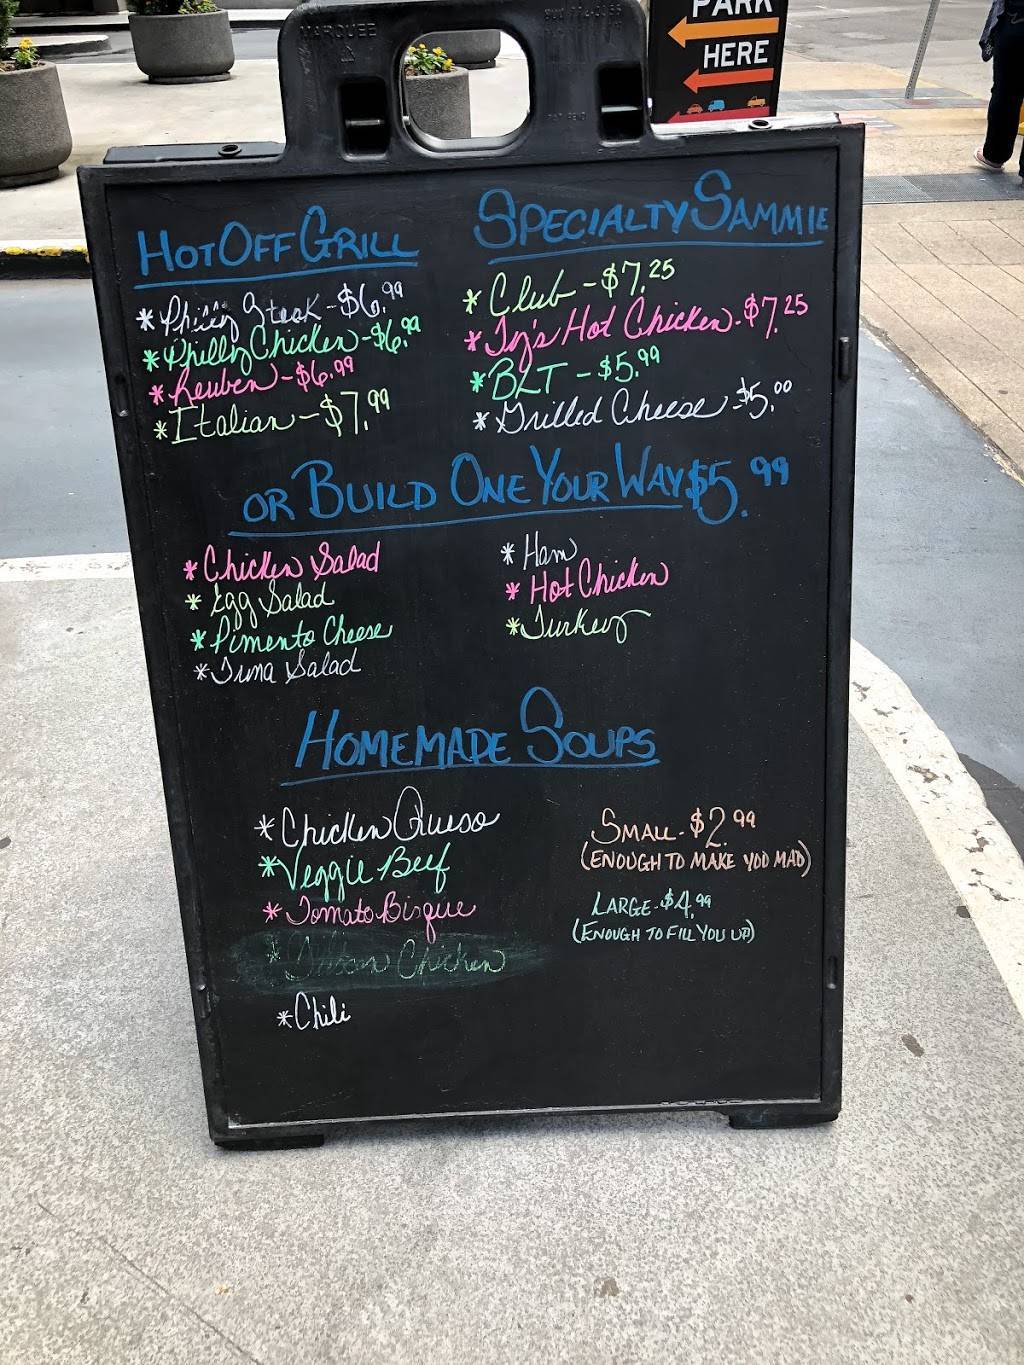 MARQUEE
PARK
HERE
HOT OFF GRILL
* Philly Steak - $6.99
* Philly Chicken - $6.99
* Reuben - $6.99
* Italian - $7.99
SPECIALTY SAMMIE
* Club - $7.25
* Ty's Hot Chicken - $7.25
* BLT - $5.99
* Grilled Cheese - $5.00
OR BUILD ONE YOUR WAY $5.99
* Chicken Salad
* Egg Salad
* Pimento Cheese
* Tuna Salad
* Ham
* Hot Chicken
* Turkey
HOMEMADE SOUPS
* Chicken Queso
* Veggie Beef
* Tomato Bisque
* Chicken
* Chili
SMALL - $2.99
(ENOUGH TO MAKE YOU MAD)
LARGE - $4.99
(ENOUGH TO FILL YOU UP)